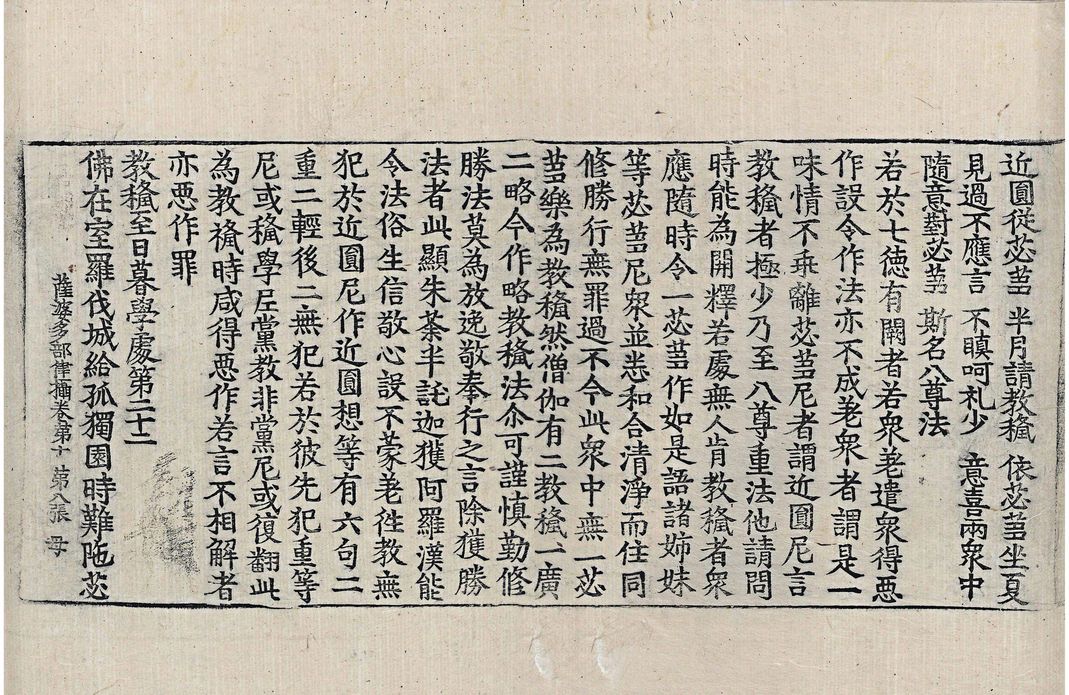 近圓從苾蒭　半月請教授　依苾蒭坐夏
見過不應言　不瞋呵礼少　意喜兩衆中
隨意對苾蒭　斯名八尊法
若於七德有闕者若衆差遣衆得惡
作設令作法亦不成差衆者謂是一
味情不乖離苾蒭尼者謂近圓尼言
教授者極少乃至八尊重法他請問
時能為開釋若處無人肯教授者衆
應隨時令一苾蒭作如是語諸姉妹
等苾蒭尼衆並悉和合清淨而住同
修勝行無罪過不今此衆中無一苾
蒭樂為教授然僧伽有二教授一廣
二略今作略教授法尒可謹慎勤修
勝法莫為放逸敬奉行之言除獲勝
法者此顯朱荼半託迦獲阿羅漢能
令法俗生信敬心設不蒙差徃教無
犯於近圓尼作近圓想等有六句二
重二輕後二無犯若於彼先犯重等
尼或授學尼黨教非黨尼或復翻此
為教授時咸得惡作若言不相解者
亦惡作罪
教授至日暮學處第二十二
佛在室羅伐城給孤獨園時難陁苾
薩婆多部律攝卷第十　第八張　毋